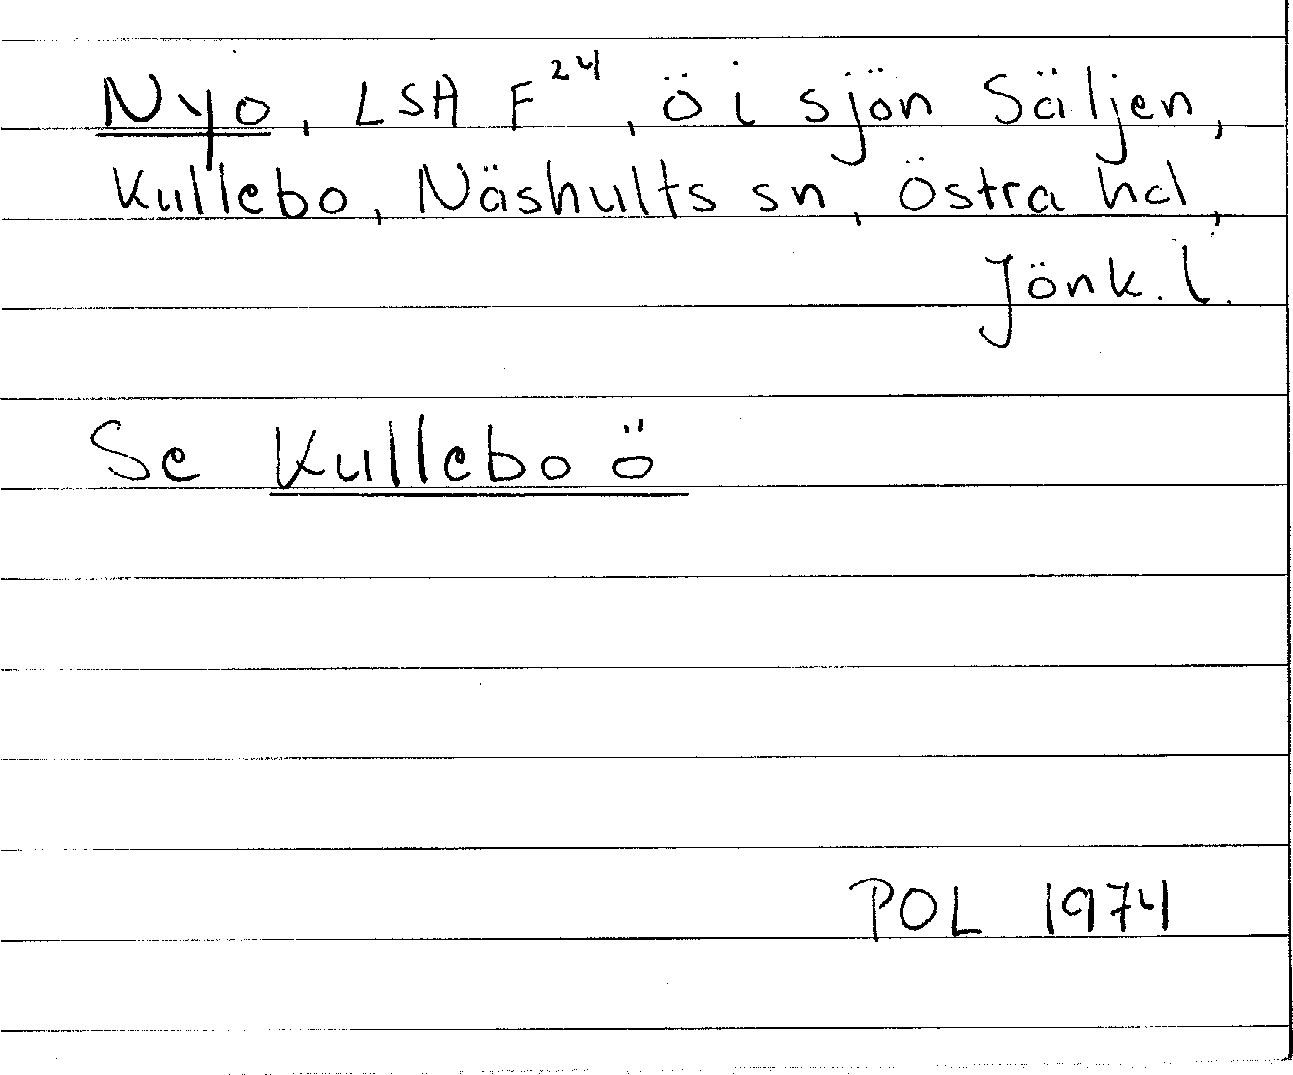 Nyo, LSA F²⁴, ö i sjön Säljen,
Kullebo, Näshults sn, Östra hd,
Jönk. l.
Se Kullebo ö
POL 1974